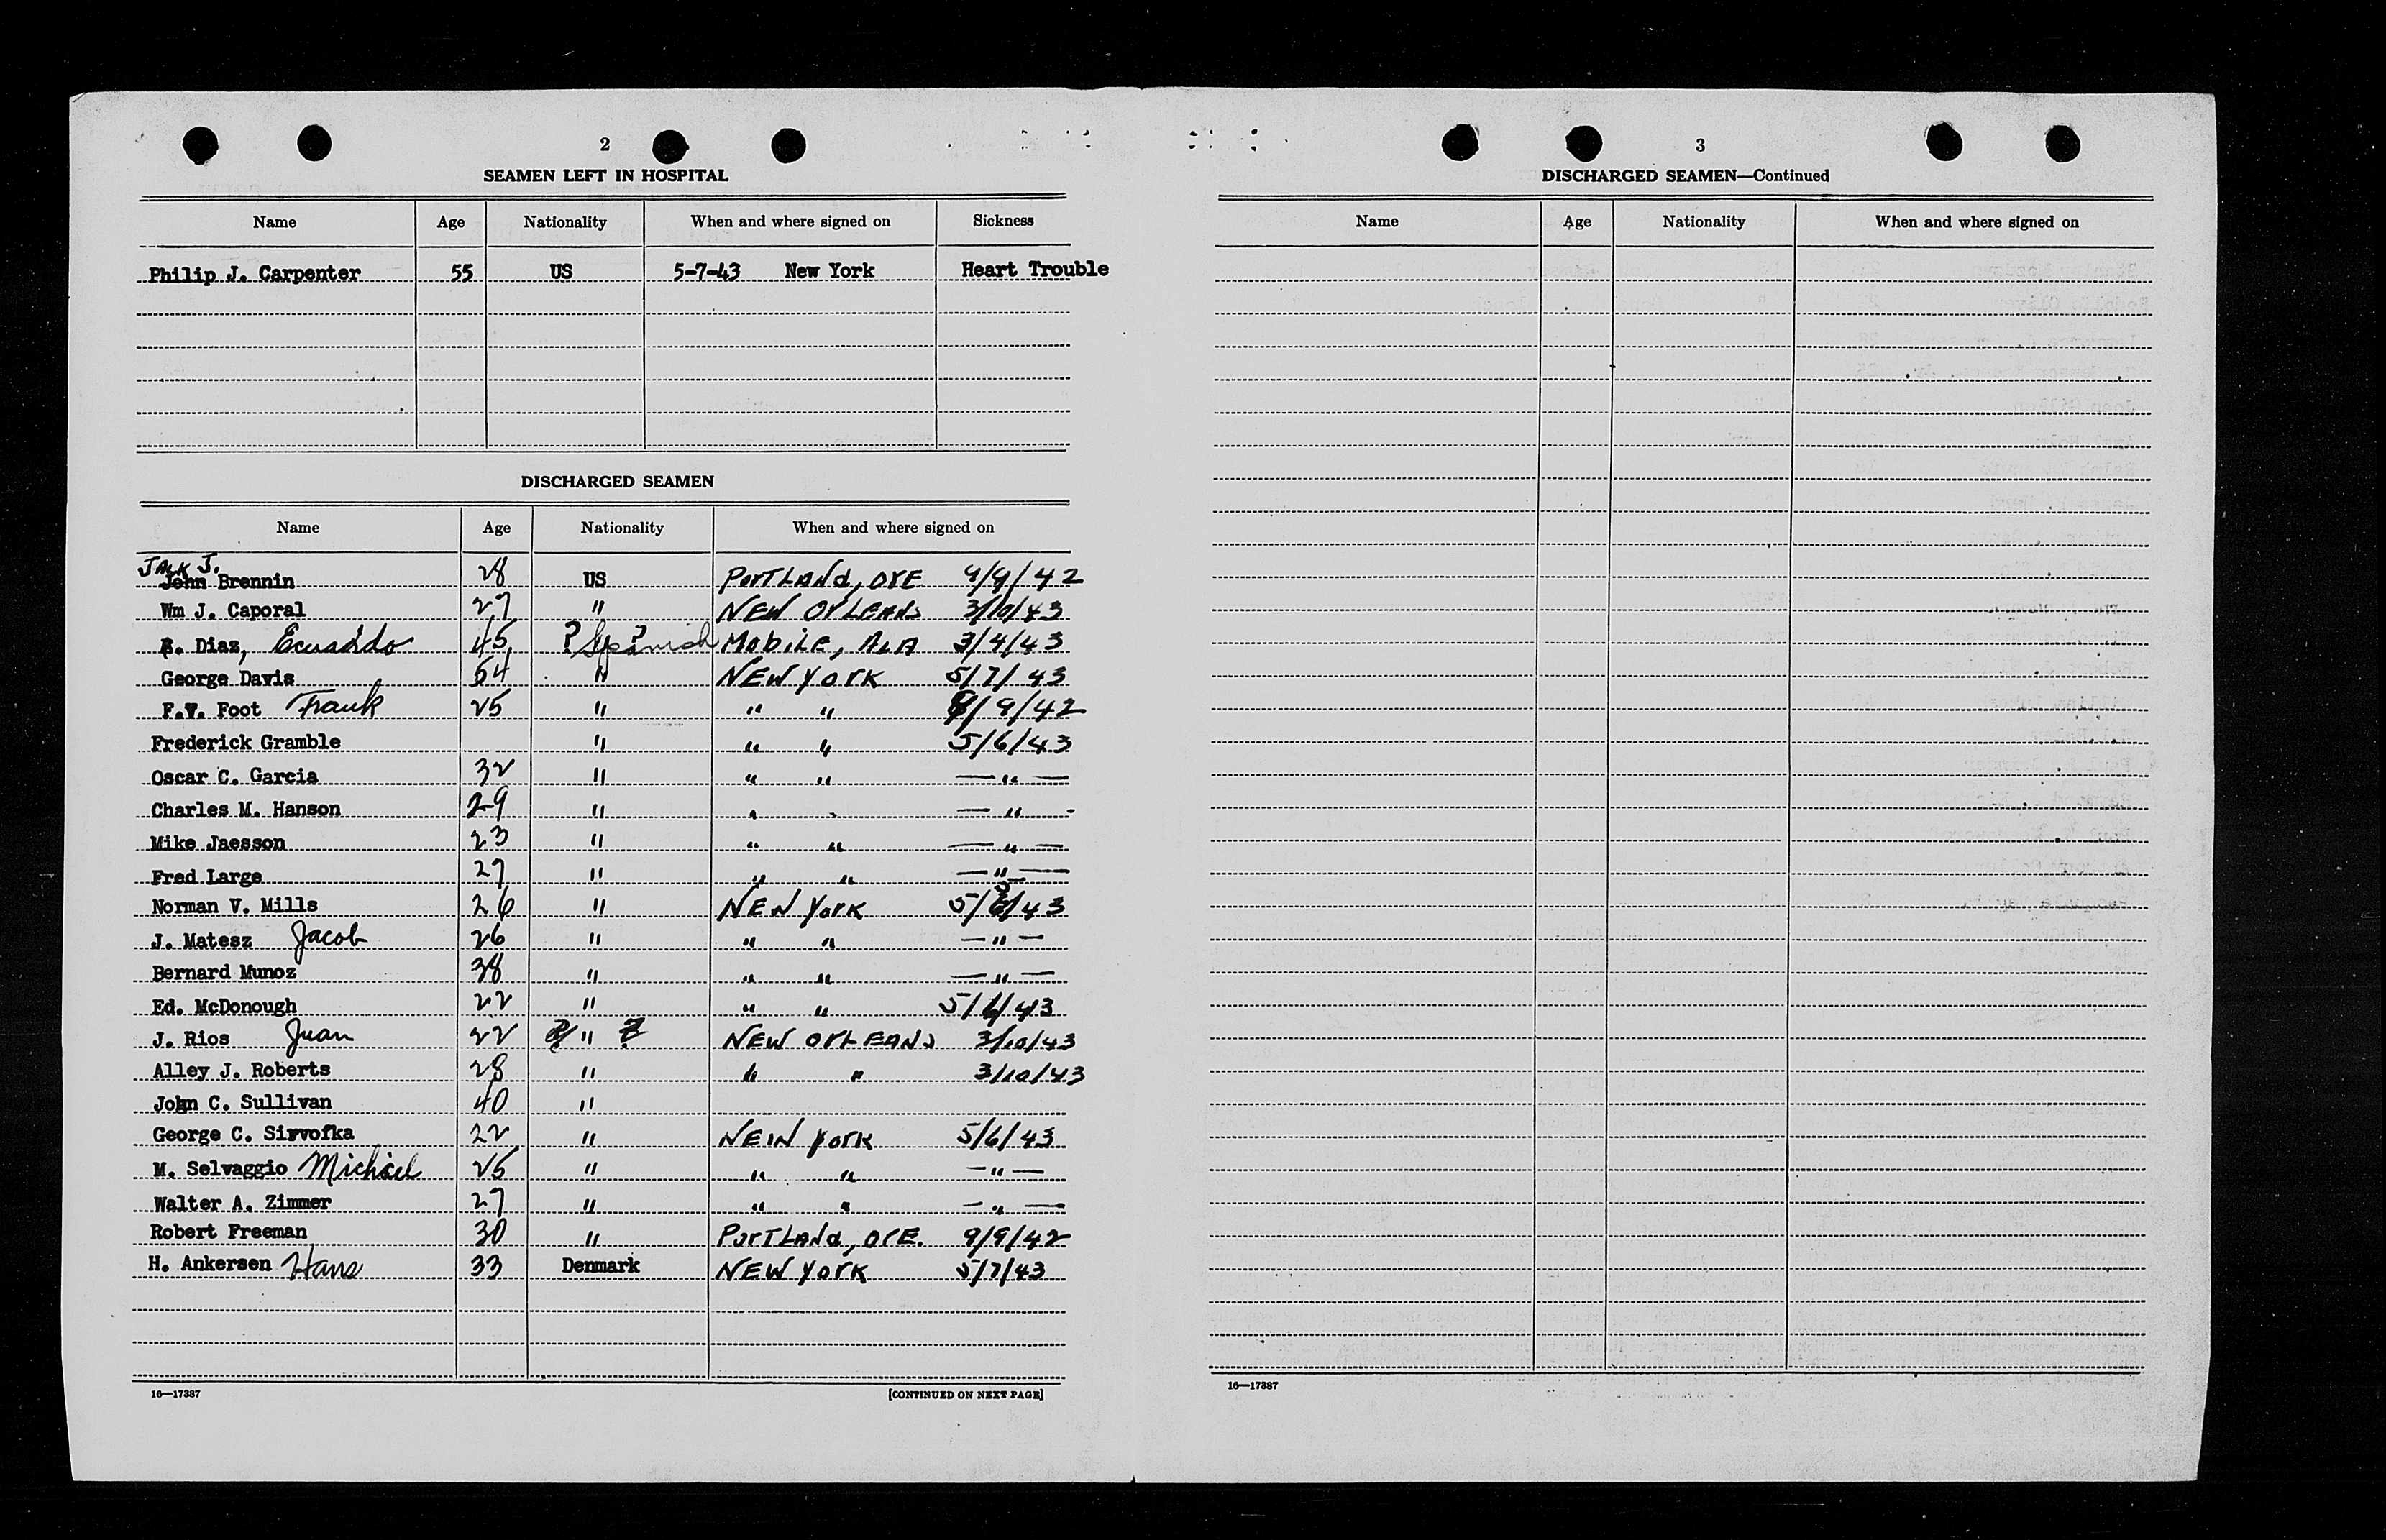 2
SEAMEN LEFT IN HOSPITAL
Name Age Nationality When and where signed on Sickness
Philip J. Carpenter 55 US 5-7-43 New York Heart Trouble
DISCHARGED SEAMEN
Name Age Nationality When and where signed on
JACK J.
John Brennin 28 US PORTLANd, OrE 9/9/42
Wm J. Caporal 27 " NEW OrLEANS 3/10/43
E. Diaz, Ecuardo 45 ? Spanish ? MobiLe, ALA 3/4/43
George Davis 54 " NEW YOrK 5/7/43
F.V. Foot Frank 25 " " " 9/9/42
Frederick Gramble " " " 5/6/43
Oscar C. Garcia 32 " " " — " —
Charles M. Hanson 29 " " " — " —
Mike Jaesson 23 " " " — " —
Fred Large 27 " " " — " —
Norman V. Mills 26 " NEW YorK 5/5/43
J. Matesz Jacob 26 " " " — " —
Bernard Munoz 38 " " " — " —
Ed. McDonough 22 " " " 5/6/43
J. Rios Juan 22 ? " ? NEW OrLEANS 3/10/43
Alley J. Roberts 28 " " " 3/10/43
John C. Sullivan 40 "
George C. Sirvofka 22 " NEW YorK 5/6/43
M. Selvaggio Michael 25 " " " — " —
Walter A. Zimmer 27 " " " — " —
Robert Freeman 30 " PorTLANd, OrE. 9/9/42
H. Ankersen Hans 33 Denmark NEW YorK 5/7/43
16—17387 [CONTINUED ON NEXT PAGE]
3
DISCHARGED SEAMEN—Continued
Name Age Nationality When and where signed on
16—17387